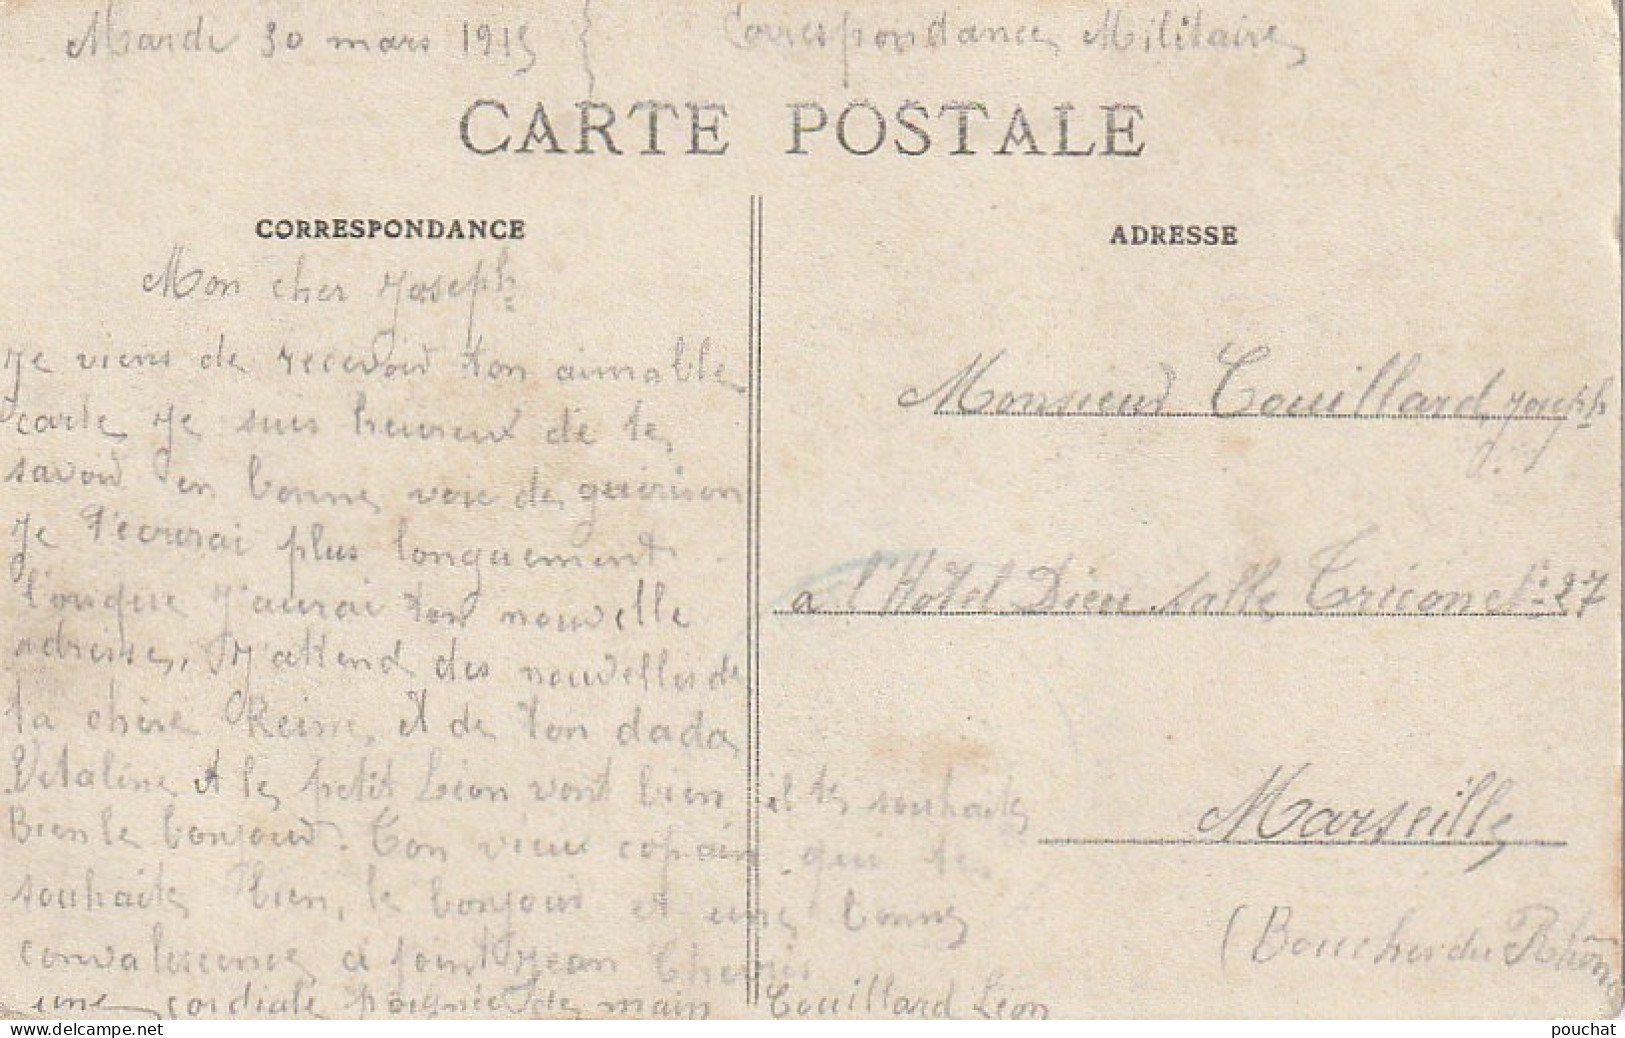 Mardi 30 mars 1915 } Correspondance Militaire
CARTE POSTALE
CORRESPONDANCE
Mon cher Joseph
Je viens de recevoir ton aimable
carte Je suis heureux de te
savoir en bonne voie de guérison
Je t'écrirai plus longuement
lorsque j'aurai ton nouvelle
adresse, J'attend des nouvelles de
ta chère Reine, et de ton dada
Vitaline et le petit Léon vont bien il te souhaite
Bien le bonjour. Ton vieux copain qui te
souhaite bien, le bonjour et une bonne
convalescence a joint Jean
une cordiale poignée de main Couillard Léon
ADRESSE
Monsieur Couillard Joseph
a l'Hôtel Dieu salle Tricon N° 27
Marseille
(Bouches du Rhône
delcampe.net
pouchat